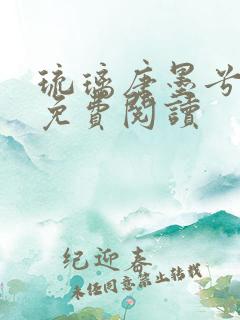 琉璃唐墨兮
免費閱讀
纪迎春
未经同意禁止转载